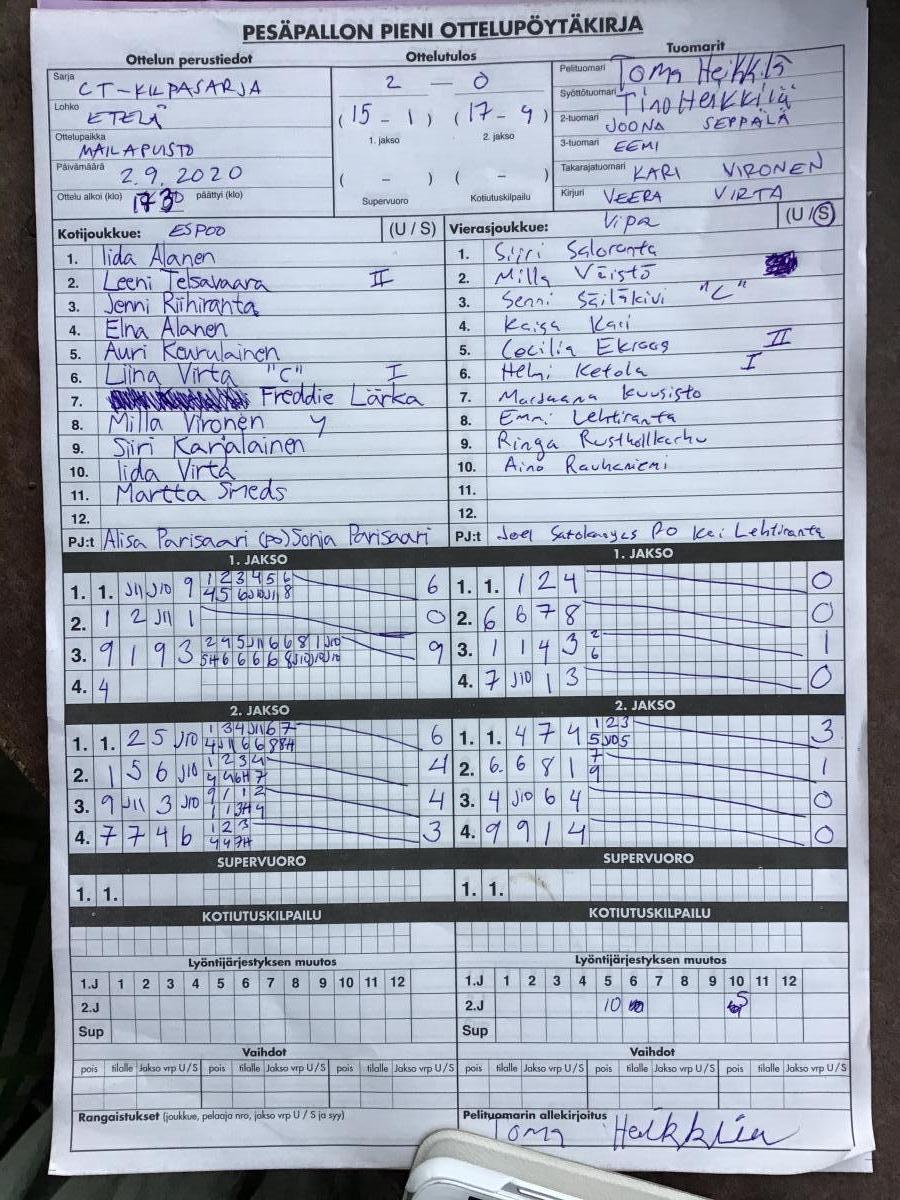 PESÄPALLON PIENI OTTELUPÖYTÄKIRJA
Ottelun perustiedot
Sarja
CT-KILPASARJA
Lohko
ETELÄ
Ottelupaikka
MAILAPUISTO
Päivämäärä
2.9.2020
Ottelu alkoi (klo) 1730 päättyi (klo)
Ottelutulos
2 — 0
(15 - 1) (17 - 4)
1. jakso 2. jakso
( - ) ( - )
Supervuoro Kotiutuskilpailu
Tuomarit
Pelituomari Toma Heikkilä
Syöttötuomari Tino Heikkilä
2-tuomari JOONA SEPPÄLÄ
3-tuomari EEMI
Takarajatuomari KARI VIRONEN
Kirjuri VEERA VIRTA
Kotijoukkue: ESPOO (U / S)
1. Iida Alanen
2. Leeni Telsavaara II
3. Jenni Riihiranta
4. Elna Alanen
5. Auri Kourulainen
6. Liina Virta "C" I
7. Freddie Lärka
8. Milla Vironen y
9. Siiri Karjalainen
10. Iida Virta
11. Martta Smeds
12.
PJ:t Alisa Parisaari (po) Sonja Parisaari
Vierasjoukkue: Vipa (U / S)
1. Siiri Saloranta
2. Milla Väistö
3. Senni Säiläkivi "C"
4. Kaisa Kari
5. Cecilia Ekroos II
6. Helmi Ketola I
7. Marjaana Kuusisto
8. Emmi Lehtiranta
9. Ringa
10. Aino Rauhaniemi
11.
12.
PJ:t Joel PO Kai Lehtiranta
1. JAKSO
1. 1. J11 J10 9 1 2 3 4 5 6 6
4 5 6 J10 J11 8
2. 1 2 J11 1 0
3. 9 1 9 3 2 4 5 J11 6 6 8 1 J10 9
4. 4
1. JAKSO
1. 1. 1 2 4 0
2. 6 6 7 8 0
3. 1 1 4 3 2 1
6
4. 7 J10 1 3 0
2. JAKSO
1. 1. 2 5 J10 1 3 4 J11 6 7 6
4 J11 6 6 8 8H
2. 1 5 6 J10 1 2 3 4 4
4 4 6H 7
3. 9 J11 3 J10 9 1 1 2 4
1 1 3H 4
4. 7 7 4 6 1 2 3 3
4 4 7H
2. JAKSO
1. 1. 4 7 4 1 2 3 3
5 J10 5
2. 6. 6 8 1 7 1
9
3. 4 J10 6 4 0
4. 9 9 1 4 0
SUPERVUORO
1. 1.
SUPERVUORO
1. 1.
KOTIUTUSKILPAILU
KOTIUTUSKILPAILU
Lyöntijärjestyksen muutos
1.J 1 2 3 4 5 6 7 8 9 10 11 12
2.J
Sup
Lyöntijärjestyksen muutos
1.J 1 2 3 4 5 6 7 8 9 10 11 12
2.J 10 5
Sup
Vaihdot
pois tilalle Jakso vrp U / S pois tilalle Jakso vrp U / S pois tilalle Jakso vrp U / S
Vaihdot
pois tilalle Jakso vrp U / S pois tilalle Jakso vrp U / S pois tilalle Jakso vrp U / S
Rangaistukset (joukkue, pelaaja nro, jakso vrp U / S ja syy)
Pelituomarin allekirjoitus
Toma Heikkilä